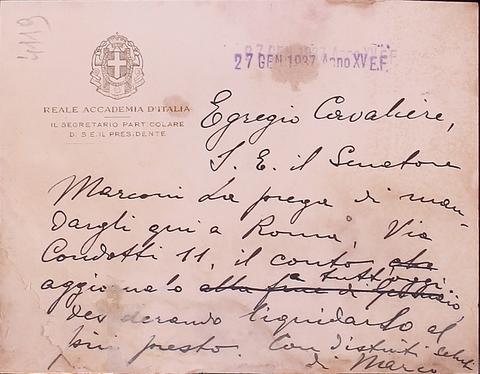 4119
27 GEN 1937 Anno XV E.F.
27 GEN 1937 Anno XV E.F.
REALE ACCADEMIA D'ITALIA
IL SEGRETARIO PARTICOLARE
DI S. E. IL PRESIDENTE
Egregio Cavaliere,
S. E. il Senatore
Marconi La prega di man-
dargli qui a Roma, Via
Condotti 11, il conto che
a tutt'oggi
aggiornato alla fine di Gennaio,
desiderando liquidarlo al
più presto. Con distinti saluti
di Marco